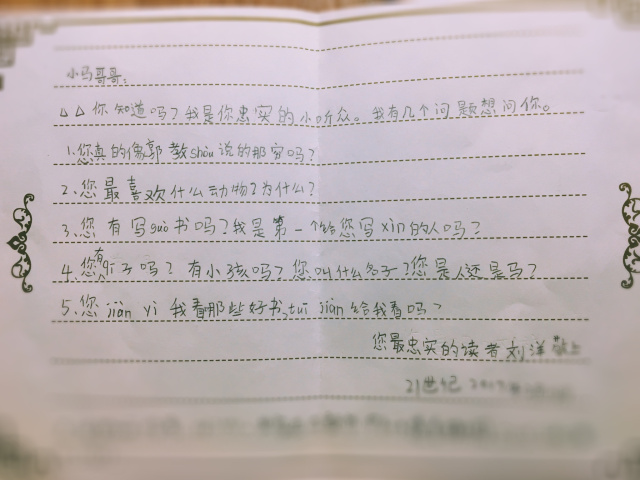 小马哥哥：
△△你知道吗？我是你忠实的小听众。我有几个问题想问你。
1.您真的像郭教shòu说的那穷吗？
2.您最喜欢什么动物？为什么？
3.您有写guò书吗？我是第一个给您写xìn的人吗？
4.您有子吗？有小孩吗？您叫什么名子？您是人还是马？
5.您jiàn yì我看那些好书,tuī jiàn给我看吗？
您最忠实的读者刘洋敬上
21世纪